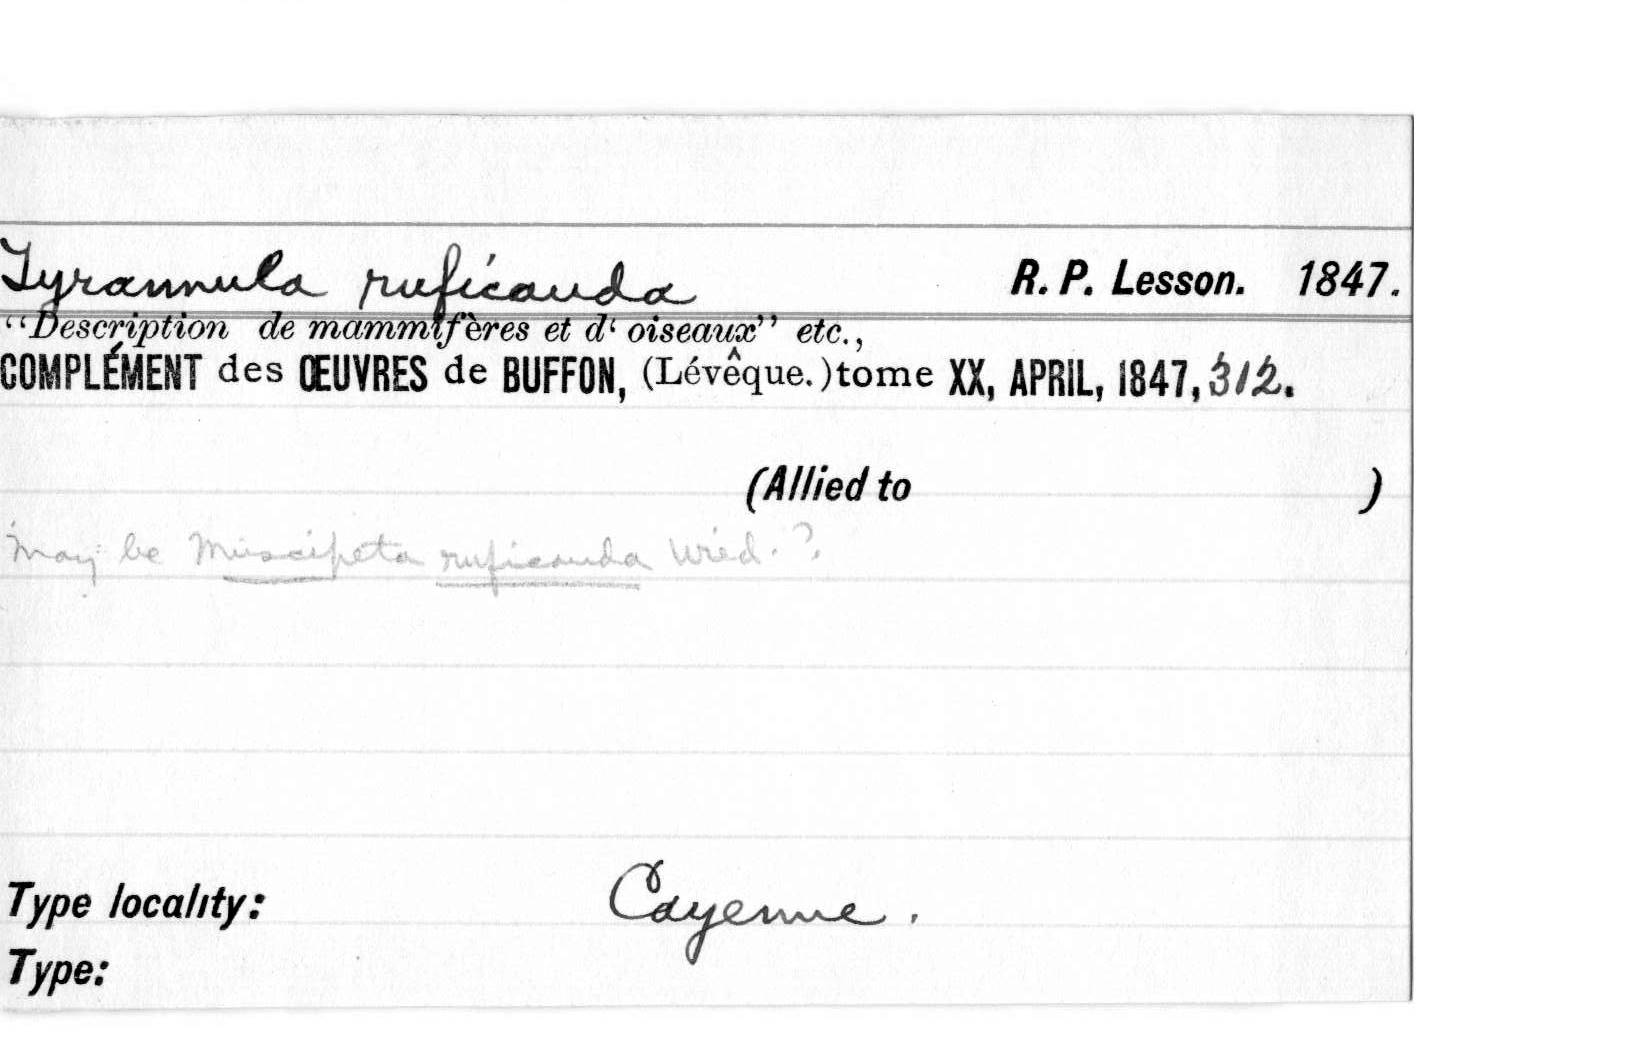 Tyrannula ruficauda R. P. Lesson. 1847.
“Description de mammifères et d‘ oiseaux” etc.,
COMPLÉMENT des ŒUVRES de BUFFON, (Lévêque.) tome XX, APRIL, 1847, 312.
(Allied to )
May be Muscipeta ruficauda Wied. ?.
Type locality: Cayenne.
Type: